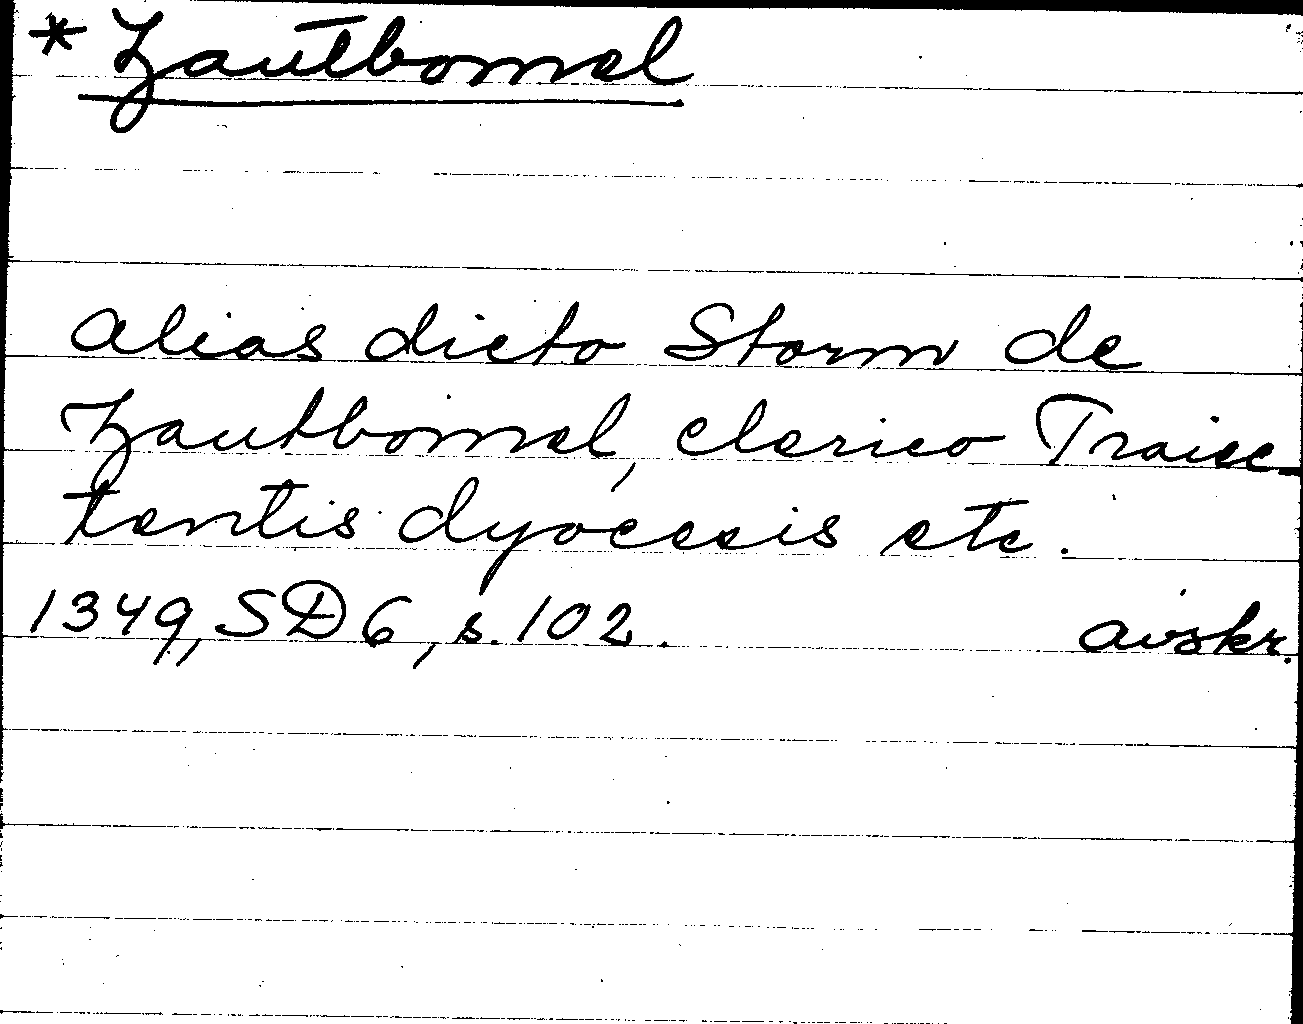 * Zautbomel
alias dicto Storm de
Zautbomel, clerico Traiec-
tentis dyocesis etc.
1349, SD 6, s. 102. avskr.